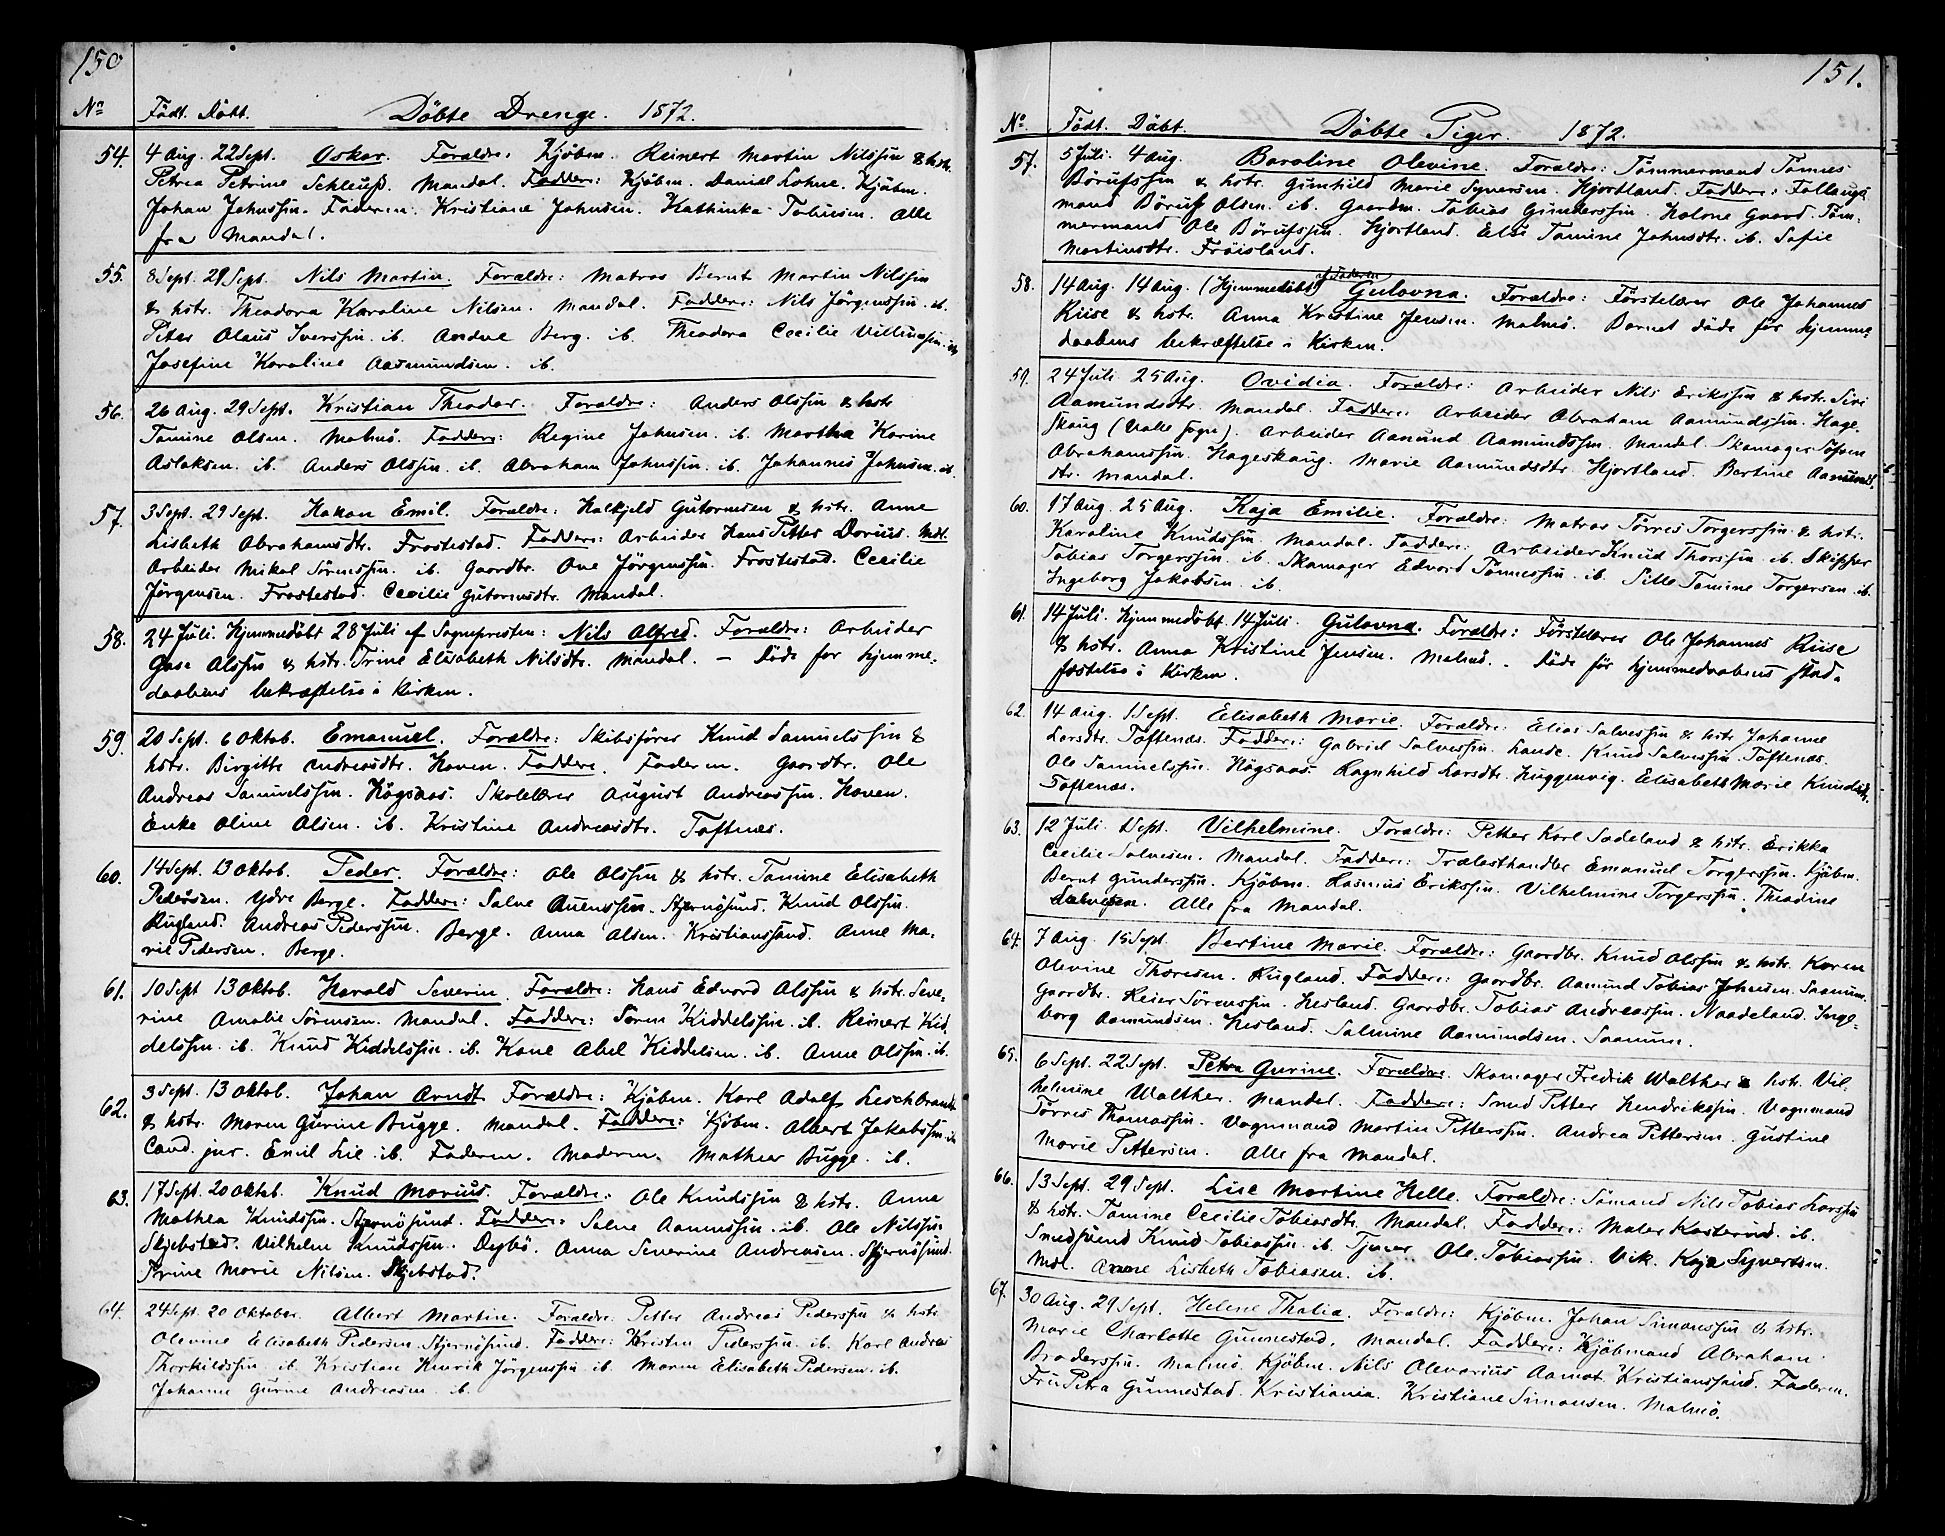 150
No Födt. Döbt. Döbte Drenge. 1872.
54. 4 Aug. 22 Sept. Oskar. Forældre: Kjöbm. Reinert Martin Nilssøn & hstr.
Petrea Petrine Schleuss. Mandal. Faddere: Kjöbm. Daniel Lohne. Kjöbm.
Johan Johnssøn. Faderen. Kristiane Johnsen. Kathinka Tobiesen. Alle
fra Mandal.
55. 8 Sept. 29 Sept. Nils Martin. Forældre: Matros Bernt Martin Nilssøn
& hstr. Theodora Karoline Nilsen. Mandal. Faddere: Nils Jörgenssøn. ib.
Peter Olaus Iverssøn. ib. Andrea Berg. ib. Theodora Cecilie
Josefine Karoline Aasmundsen. ib.
56. 26 Aug. 29 Sept. Kristian Theodor. Forældre: Anders Olssøn & hstr.
Tomine Olsen. Malmö. Faddere: Regine Johnsen. ib. Martha Karine
Aslaksen. ib. Anders Olssøn. ib. Abraham Johnssøn. ib. Johannes Johnsen. ib.
57. 3 Sept. 29 Sept. Hakon Emil. Forældre: Halkjeld Gutormsen & hstr. Anne
Lisbeth Abrahamsdtr. Frostestad. Faddere: Arbeider Hans Petter Dorius. Mdl.
Arbeider Mikal Sörenssøn. ib. Gaardbr. Ove Jörgenssøn. Frostestad. Cecilie
Jörgensen. Frostestad. Cecilie Gutormsdtr. Mandal.
58. 24 Juli. Hjemmedöbt 28 Juli af Sognepresten: Nils Alfred. Forældre: Arbeider
Olssøn & hstr. Trine Elisabeth Nilsdtr. Mandal. – Döde for hjemme-
daabens bekræftelse i Kirken.
59. 20 Sept. 6 Oktob. Emanuel. Forældre: Skibsförer Knud Samuelssøn &
hstr. Birgitte Andreasdtr. Haven. Faddere. Faderen. Gaardbr. Ole
Andreas Samuelssøn. Högsaas. Skolelærer August Andreassøn. Haven.
Enke Oline Olsen. ib. Kristine Andreasdtr. Toftenæs.
60. 14 Sept. 13 Oktob. Peder. Forældre: Ole Olssøn & hstr. Tomine Elisabeth
Pedersen. Ydre Berge. Faddere: Salve Auenssøn. Stjernösund. Knud Olssøn.
Rugland. Andreas Pederssøn. Berge. Anna Olsen. Kristianssand. Anne Ma-
rie Pedersen. Berge.
61. 10 Sept 13 Oktob. Harald Severin. Forældre: Hans Edvard Olssøn & hstr. Seve-
rine Amalie Sörensen. Mandal. Faddere: Sören Kiddelssøn. ib. Reinert Kid-
delssøn. ib. Knud Kiddelssøn. ib. Kone Abel Kiddelsen. ib. Anne Olssøn. ib.
62. 3 Sept. 13 Oktob. Johan Arndt. Forældre: Kjöbm. Karl Adolf Leschbrandt
& hstr. Maren Gurine Bugge. Mandal. Faddere: Kjöbm. Albert Jakobssøn. ib.
Cand. jur. Emil Lie. ib. Faderen. Moderen. Mathea Bugge. ib.
63. 17 Sept. 20 Oktob. Knud Marius. Forældre: Ole Knudssøn & hstr. Anna
Mathea Knudssøn. Stjernösund. Faddere: Salve Aanenssøn. ib. Ole Nilssøn.
Skjebstad. Vilhelm Knudssøn. Dybö. Anna Severine Andreasen. Stjernösund.
Trine Marie Nilsen. Skjebstad.
64. 24 Sept. 20 Oktober. Albert Martin. Forældre. Petter Andreas Pederssøn & hstr.
Olevine Elisabeth Pedersen. Stjernösund. Faddere: Kristen Pederssøn. ib. Karl Andreas
Thorkildssøn. ib. Kristian Henrik Jörgenssøn. ib. Maren Elisabeth Pedersen. ib.
Johanne Gurine Andreasen. ib.
151.
No. Födt. Döbt. Döbte Piger. 1872.
57. 5 Juli. 4 Aug. Baroline Olevine. Forældre: Tömmermand Tönnes
Börufssøn & hstr. Gunhild Marie Syversen. Hjortland. Faddere: Follaugs-
mand Böruf Olsen. ib. Gaardm. Tobias Gunderssøn. Holone Gaard. Töm-
mermand Ole Börufssøn. Hjortland. Else Tomine Johnsdtr. ib. Sofie
Martinsdtr. Fröisland.
58. 14 Aug. 14 Aug. (Hjemmedöbt af Faderen) Gulovna. Forældre: Förstelærer Ole Johannes
Riise & hstr. Anna Kristine Jensen. Malmö. Barnet döde för hjemme-
daabens bekræftelse i Kirken.
59. 24 Juli 25 Aug. Ovidia. Forældre: Arbeider Nils Erikssøn & hstr. Siri
Aamundsdtr. Mandal. Faddere: Arbeider Abraham Aamundssøn. Hage-
skaug (Halle sogn). Arbeider Aanund Aamundssøn. Mandal. Skomager Tofven
Abrahamssøn. Hageskaug. Marie Aamundsdtr. Hjortland. Bertine Aamunds-
dtr. Mandal.
60. 17 Aug. 25 Aug. Kaja Emilie. Forældre: Matros Törres Torgerssøn & hstr.
Karoline Knudssøn. Mandal. Faddere: Arbeider Knud Thorssøn. ib. Skipper
Tobias Torgerssøn. ib. Skomager Edvard Tönnessøn. ib. Sille Tomine Torgersen. ib.
Ingeborg Jakobsen. ib.
61. 14 Juli. Hjemmedöbt. 14 Juli. Gulovna. Forældre: Förstelærer Ole Johannes Riise
& hstr. Anna Kristine Jensen. Malmö. – Döde för hjemmedaabens stad-
fæstelse i Kirken.
62. 14 Aug. 1 Sept. Elisabeth Marie. Forældre: Elias Salvessøn & hstr. Johanne
Larsdtr. Toftenæs. Faddere: Gabriel Salvessøn. Lande. Knud Salvessøn. Toftenæs.
Ole Samuelssøn. Högsaas. Ragnhild Larsdtr. Huggenvig. Elisabeth Marie Knudsdtr.
Toftenæs.
63. 12 Juli. 1 Sept. Vilhelmine. Forældre: Petter Karl Sodeland & hstr. Erikka
Cecilie Salvesen. Mandal. Faddere: Trælasthandler Emanuel Torgerssøn. Kjöbm.
Bernt Gunderssøn. Kjöbm. Rasmus Erikssøn. Vilhelmine Torgerssøn. Theodine
Salvesen. Alle fra Mandal.
64. 7 Aug. 15 Sept. Bertine Marie. Forældre: Gaardbr. Knud Olssøn & hstr. Karen
Olevine Thoresen. Rugland. Faddere: Gaardbr. Aamund Tobias Johnsen. Saanum.
Gaardbr. Reier Sörenssøn. Hesland. Gaardbr. Tobias Andreassøn. Naadeland. Inge-
borg Aamundsen. Hesland. Salmine Aamundsen. Saanum.
65. 6 Sept. 22 Sept. Petra Gurine. Forældre. Skomager Fredrik Walther & hstr. Vil-
helmine Walther. Mandal. Faddere: Smed Petter Hendrikssøn. Vognmand
Törres Thomassøn. Vognmand Martin Petterssøn. Andrea Pettersen. Gustine
Marie Pettersen. Alle fra Mandal.
66. 13 Sept. 29 Sept. Lise Martine Helle. Forældre: Sömand Nils Tobias Larssøn
& hstr. Tomine Cecilie Tobiasdtr. Mandal. Faddere: Maler Kasterud. ib.
Smedsvend Knud Tobiassøn. ib. Tjener Ole Tobiassøn. Vik. Kaja Syvertsen.
Mdl. Anne Lisbeth Tobiasen. ib.
67. 30 Aug. 29 Sept. Helene Thalia. Forældre: Kjöbm. Johan Simonssøn & hstr.
Marie Charlotte Gunnestad. Mandal. Faddere: Kjöbmand Abraham
Broderssøn. Malmö. Kjöbm. Nils Olevarius Aamot. Kristianssand. Faderen.
Fru Petra Gunnestad. Kristiania. Kristiane Simonsen. Malmö.